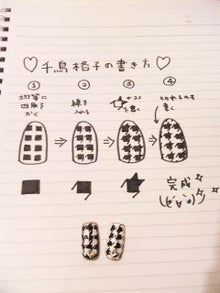 ♡千鳥格子の書き方♡
① ② ③ ④
均等に
四角を
かく
線を
入れる
ココ
を書く
切れるのも
書く
完成